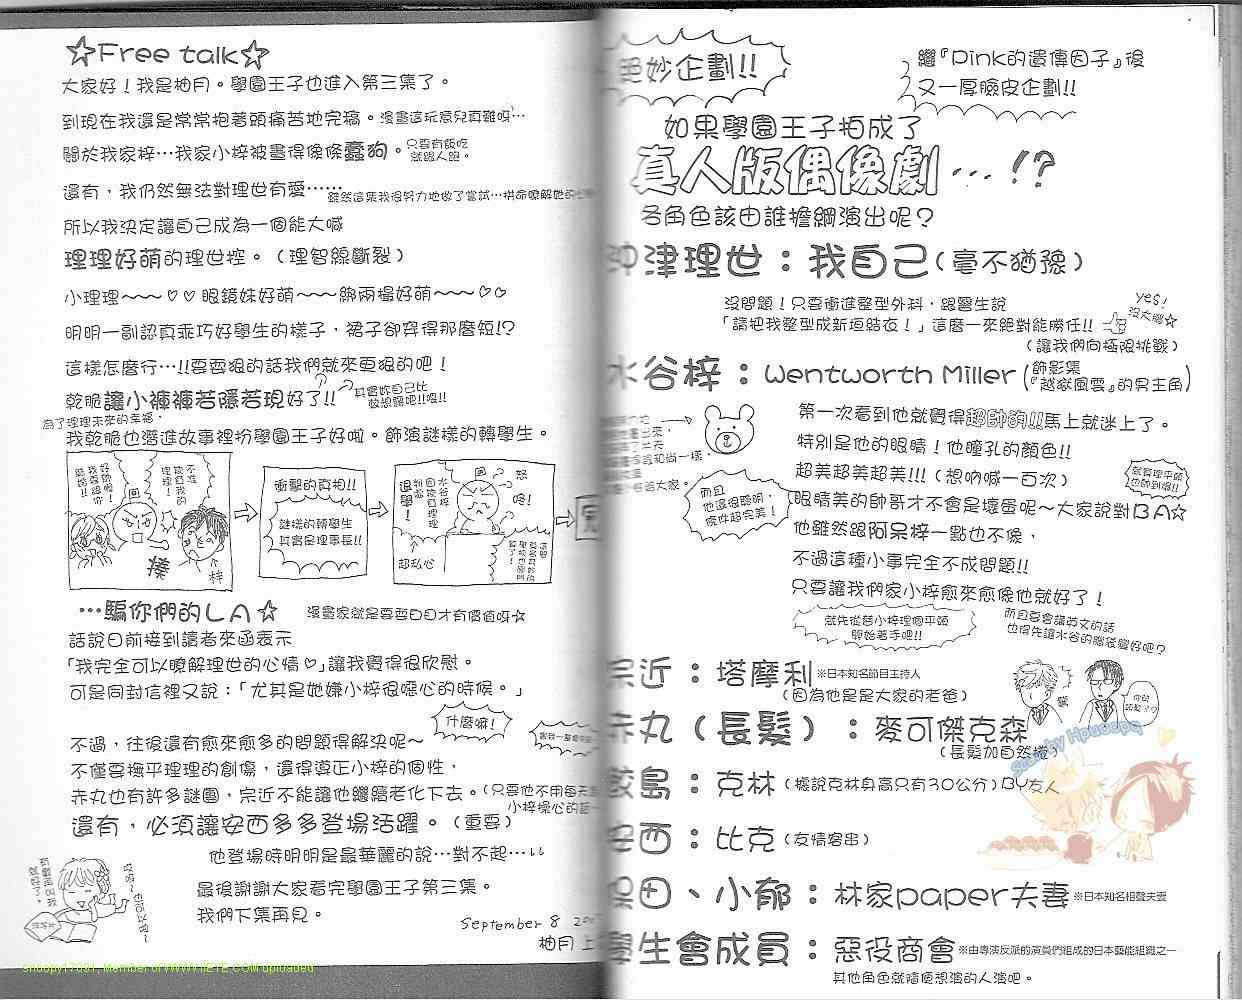 ☆Free talk☆
大家好！我是柚月。學園王子也進入第三集了。
到現在我還是常常抱著頭痛苦地完稿。漫畫這玩意兒真難呀…
關於我家梓…我家小梓被畫得像條蠢狗。只要有飯吃就跟人跑。
還有，我仍然無法對理世有愛……
雖然這集我很努力地做了嘗試…拼命瞭解她的
所以我決定讓自己成為一個能大喊
理理好萌的理世控。（理智線斷裂）
小理理～～～♡♡眼鏡妹好萌～～～綁兩揚好萌～～～♡♡
明明一副認真乖巧好學生的樣子，裙子卻穿得那麼短!?
這樣怎麼行…!!要耍狠的話我們就來更狠的吧！
乾脆讓小褲褲若隱若現好了!!
其實妳自己比較想露吧!!喂!!
為了理理未來的幸福，
我乾脆也潛進故事裡扮學園王子好啦。飾演謎樣的轉學生。
不准碰我的理理！
揍
梓
衝擊的真相!!
謎樣的轉學生
其實是理事長!!
怒
哈！
水谷梓因接近理理判處退學！
超私心
…騙你們的LA☆
漫畫家就是要耍白目才有價值呀☆
話說日前接到讀者來函表示
「我完全可以瞭解理世的心情♡」讓我覺得很欣慰。
可是同封信裡又說：「尤其是她嫌小梓很噁心的時候。」
什麼嘛！
不過，往後還有愈來愈多的問題得解決呢～
不僅要撫平理理的創傷，還得導正小梓的個性，
赤丸也有許多謎團，宗近不能讓他繼續老化下去。（只要他不用每天為
小梓操心的話
還有，必須讓安西多多登場活躍。（重要）
他登場時明明是最華麗的說…對不起…
最後謝謝大家看完學園王子第三集。
我們下集再見。
September 8 200
柚月 上
snoopy17091, Member of WWW.IIETE.COM uploaded
絕妙企劃!!
繼『Pink的遺傳因子』後
又一厚臉皮企劃!!
如果學園王子拍成了
真人版偶像劇…!?
各角色該由誰擔綱演出呢？
沖津理世：我自己（毫不猶豫）
沒問題！只要衝進整型外科，跟醫生說
「請把我整型成新垣結衣！」這麼一來絕對能勝任!!
yes!
沒大腦☆
（讓我們向極限挑戰）
水谷梓：Wentworth Miller（飾影集『越獄風雲』的男主角）
第一次看到他就覺得超帥的!!馬上就迷上了。
特別是他的眼睛！他瞳孔的顏色!!
超美超美超美!!!（想吶喊一百次）
就算理平頭也帥到爆!!
而且他還很聰明，條件超完美！
眼睛美的帥哥才不會是壞蛋呢～大家說對BA☆
他雖然跟阿呆梓一點也不像，
不過這種小事完全不成問題!!
只要讓我們家小梓愈來愈像他就好了！
就先從替小梓理個平頭開始著手吧!!
而且要會講英文的話
也得先讓水谷的腦袋變好吧？
宗近：塔摩利※日本知名節目主持人
（因為他是是大家的老爸）
赤丸（長髮）：麥可傑克森
（長髮加自然捲）
Scan by Hpuoopq
鮫島：克林（據說克林身高只有30公分）BY友人
安西：比克（友情客串）
保田、小郁：林家paper夫妻※日本知名相聲夫妻
學生會成員：惡役商會※由專演反派的演員們組成的日本藝能組織之一
其他角色就隨便想演的人演吧。